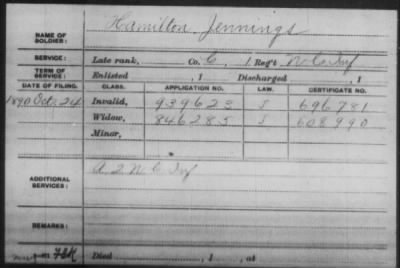 NAME OF SOLDIER: Hamilton Jennings
SERVICE: Late rank, Co. C, 1 Reg't N. C. Inf
TERM OF SERVICE: Enlisted , 1 Discharged , 1
DATE OF FILING. CLASS. APPLICATION NO. LAW. CERTIFICATE NO.
1890 Oct. 24 Invalid, 939623 S 696781
Widow, 846285 S 608990
Minor,
ADDITIONAL SERVICES: A 2 N C Inf
REMARKS:
Died , 1 , at